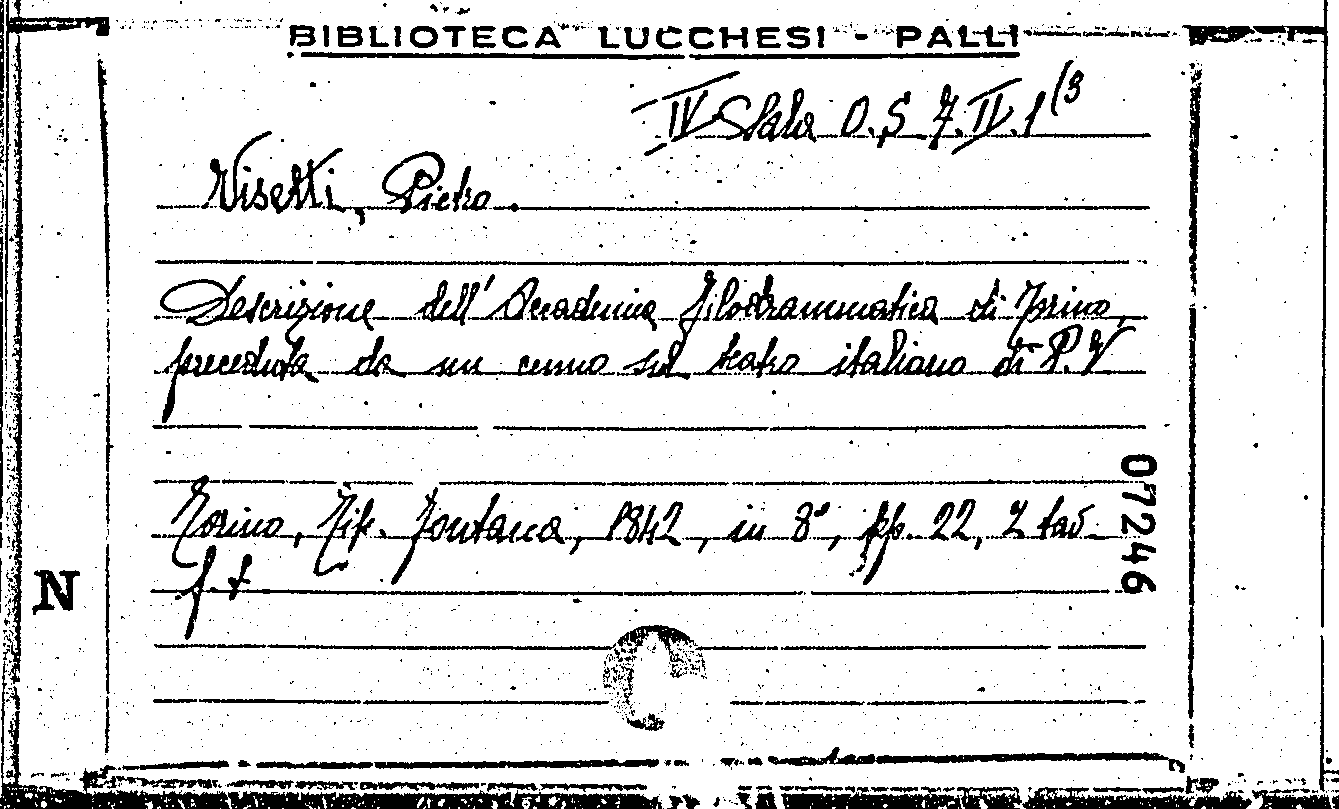 BIBLIOTECA LUCCHESI - PALLI
IV Sala O. S. 7. IV. 1(3
Visetti, Pietro.
Descrizione dell'Accademia filodrammatica di Torino,
preceduta da un cenno sul teatro italiano di P. V
Torino, Tip. Fontana, 1842, in 8°, pp. 22, 2 tav.
f. t
N
07246